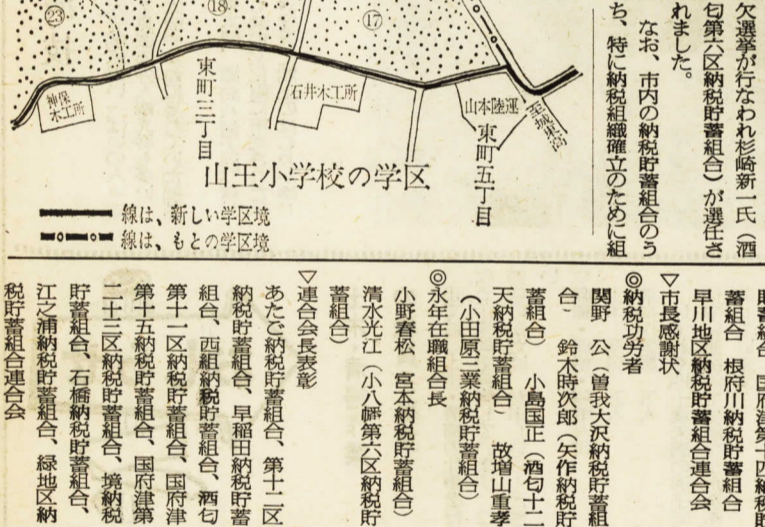 欠選挙が行なわれ杉崎新一氏（酒
匂第六区納税貯蓄組合）が選任さ
れました。
なお、市内の納税貯蓄組合のう
ち、特に納税組織確立のために組
㉓
⑱
⑰
神保木工所
東町三丁目
石井木工所
山本陸運
東町五丁目
至城東高
山王小学校の学区
線は、新しい学区境
線は、もとの学区境
蓄組合　根府川納税貯蓄組合
早川地区納税貯蓄組合連合会
▽市長感謝状
◎納税功労者
関野　公（曽我大沢納税貯蓄組
合）　鈴木時次郎（矢作納税貯
蓄組合）　小島国正（酒匂十二
天納税貯蓄組合）　故増山重孝
（小田原三業納税貯蓄組合）
◎永年在職組合長
小野春松　宮本納税貯蓄組合）
清水光江（小八幡第六区納税貯
蓄組合）
▽連合会長表彰
あたご納税貯蓄組合、第十二区
納税貯蓄組合、早稲田納税貯蓄
組合、西組納税貯蓄組合、酒匂
第十一区納税貯蓄組合、国府津
第十五納税貯蓄組合、国府津第
二十三区納税貯蓄組合、境納税
貯蓄組合、石橋納税貯蓄組合、
江之浦納税貯蓄組合、緑地区納
税貯蓄組合連合会